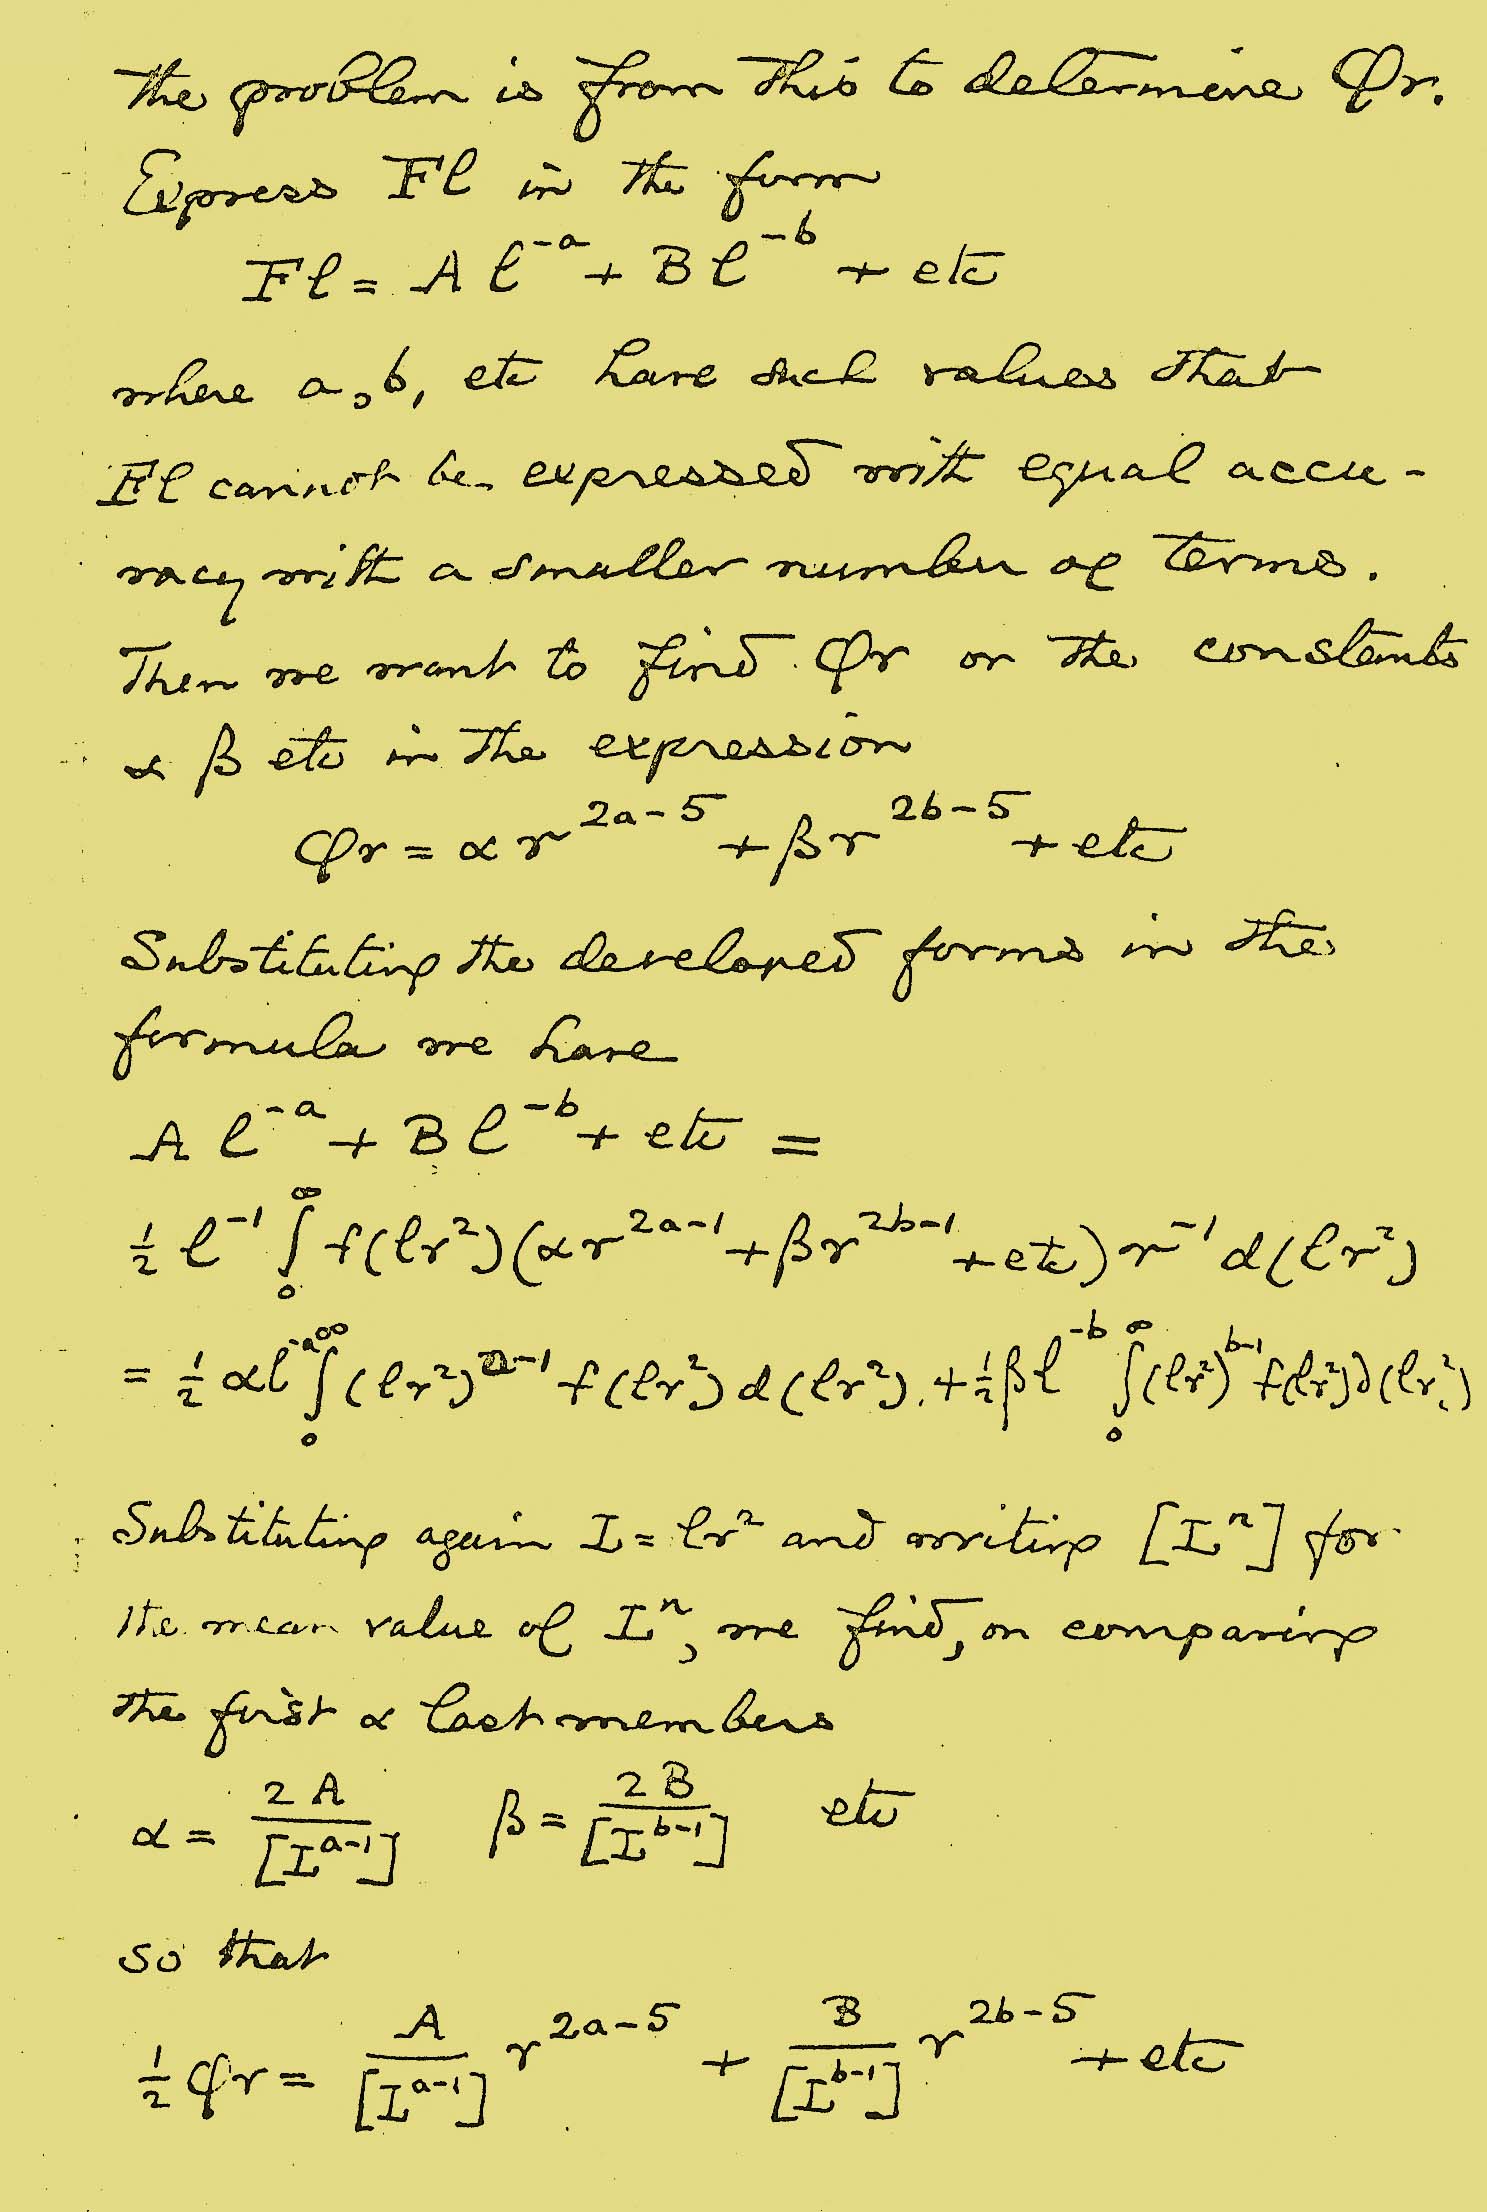 the problem is from this to determine φr.
Express Fl in the form
Fl = A l^{-a} + B l^{-b} + etc
where a, b, etc have such values that
Fl cannot be expressed with equal accu-
racy with a smaller number of terms.
Then we want to find φr or the constants
α β etc in the expression
φr = α r^{2a-5} + β r^{2b-5} + etc
Substituting the developed forms in the
formula we have
A l^{-a} + B l^{-b} + etc =
½ l^{-1} ∫_0^∞ f(lr²)(α r^{2a-1} + β r^{2b-1} + etc) r^{-1} d(lr²)
= ½ α l^{-a} ∫_0^∞ (lr²)^{a-1} f(lr²) d(lr²). + ½ β l^{-b} ∫_0^∞ (lr²)^{b-1} f(lr²) d(lr²)
Substituting again I = lr² and writing [I^n] for
the mean value of I^n, we find, on comparing
the first & last members
α = 2A/[I^{a-1}] β = 2B/[I^{b-1}] etc
so that
½ φr = A/[I^{a-1}] r^{2a-5} + B/[I^{b-1}] r^{2b-5} + etc